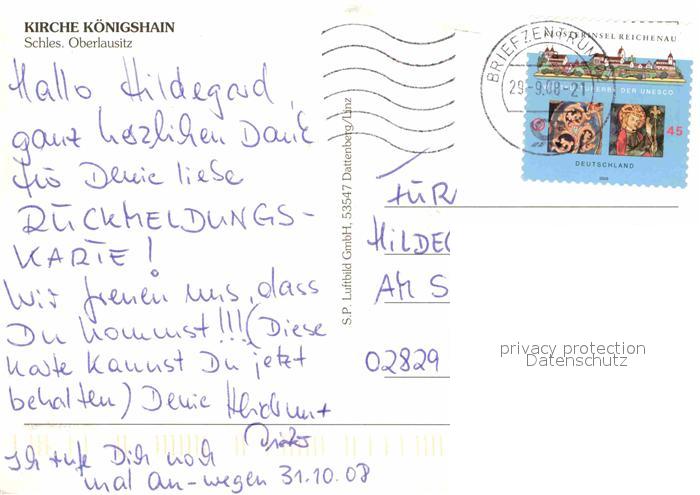 KIRCHE KÖNIGSHAIN
Schles. Oberlausitz
Hallo Hildegard,
ganz herzlichen Dank
für Deine liebe
RÜCKMELDUNGS-
KARTE!
Wir freuen uns, dass
Du kommst!!! (Diese
Karte kannst Du jetzt
behalten) Deine Heidrun +
Dieter
Ich rufe Dich noch
mal an - wegen 31.10.08
S.P. Luftbild GmbH, 53547 Dattenberg/Linz
BRIEFZENTRUM
29.-9.08-21
KLOSTERINSEL REICHENAU
DER UNESCO
45
DEUTSCHLAND
2008
FÜR
HILDE
AM S
02829
privacy protection
Datenschutz